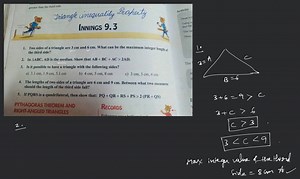 Triangle inequality Property
INNINGS 9.3
1. Two sides of a triangle are 3 cm and 6 cm. What can be the maximum integral of
the third side?
2. In △ABC, AD is the median. Show that AB + BC + AC > 2AD.
3. Is it possible to have a triangle with the following sides?
4. The lengths of two sides of a triangle are 6 cm and 8 cm. Between what two measures
should the length of the third side fall?
5. If PQRS is a quadrilateral, then show that: PQ + QR + RS + PS > 2 (PR + QS)
PYTHAGORAS THEOREM AND
RIGHT-ANGLED TRIANGLES
RECORDS
2.
1.
3=A
C
B=6
3+6=9 > C
3+C > 6
C > 3
3 < C < 9
Max integer value of third
side = 8 cm